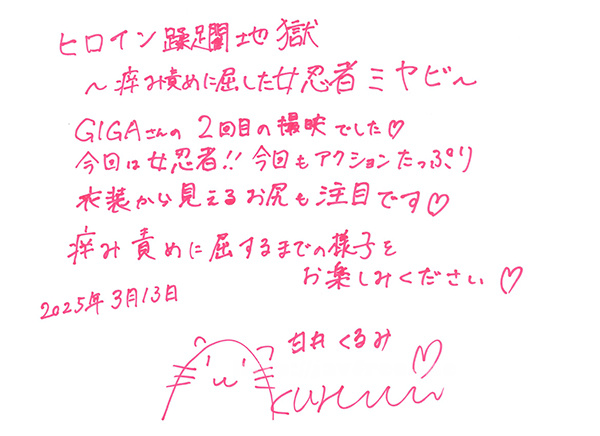 ヒロイン蹂躙地獄
～痒み責めに屈した女忍者ミヤビ～
GIGAさんの2回目の撮映でした♡
今回は女忍者!!今回もアクションたっぷり
衣装から見えるお尻も注目です♡
痒み責めに屈するまでの様子を
お楽しみください♡
2025年3月13日
臼井くるみ
Kurumi